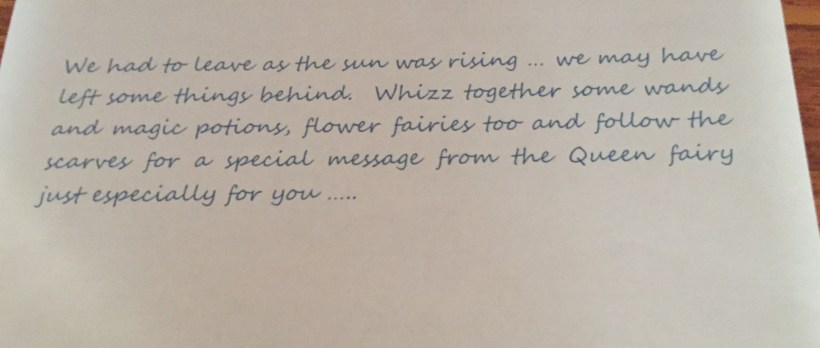 We had to leave as the sun was rising ... we may have
left some things behind.  Whizz together some wands
and magic potions, flower fairies too and follow the
scarves for a special message from the Queen fairy
just especially for you .....